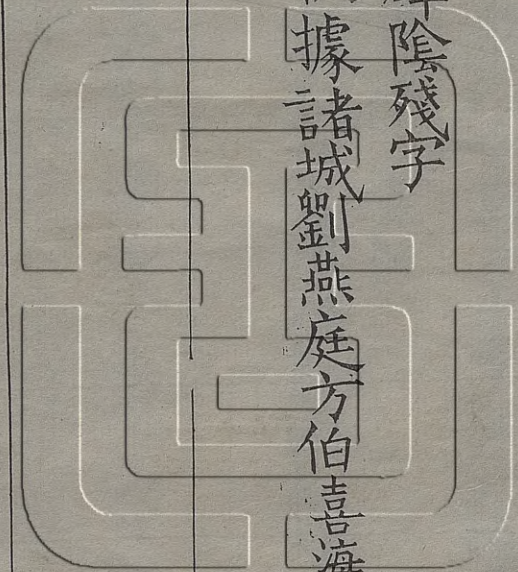 陰殘字
據諸城劉燕庭方伯喜海